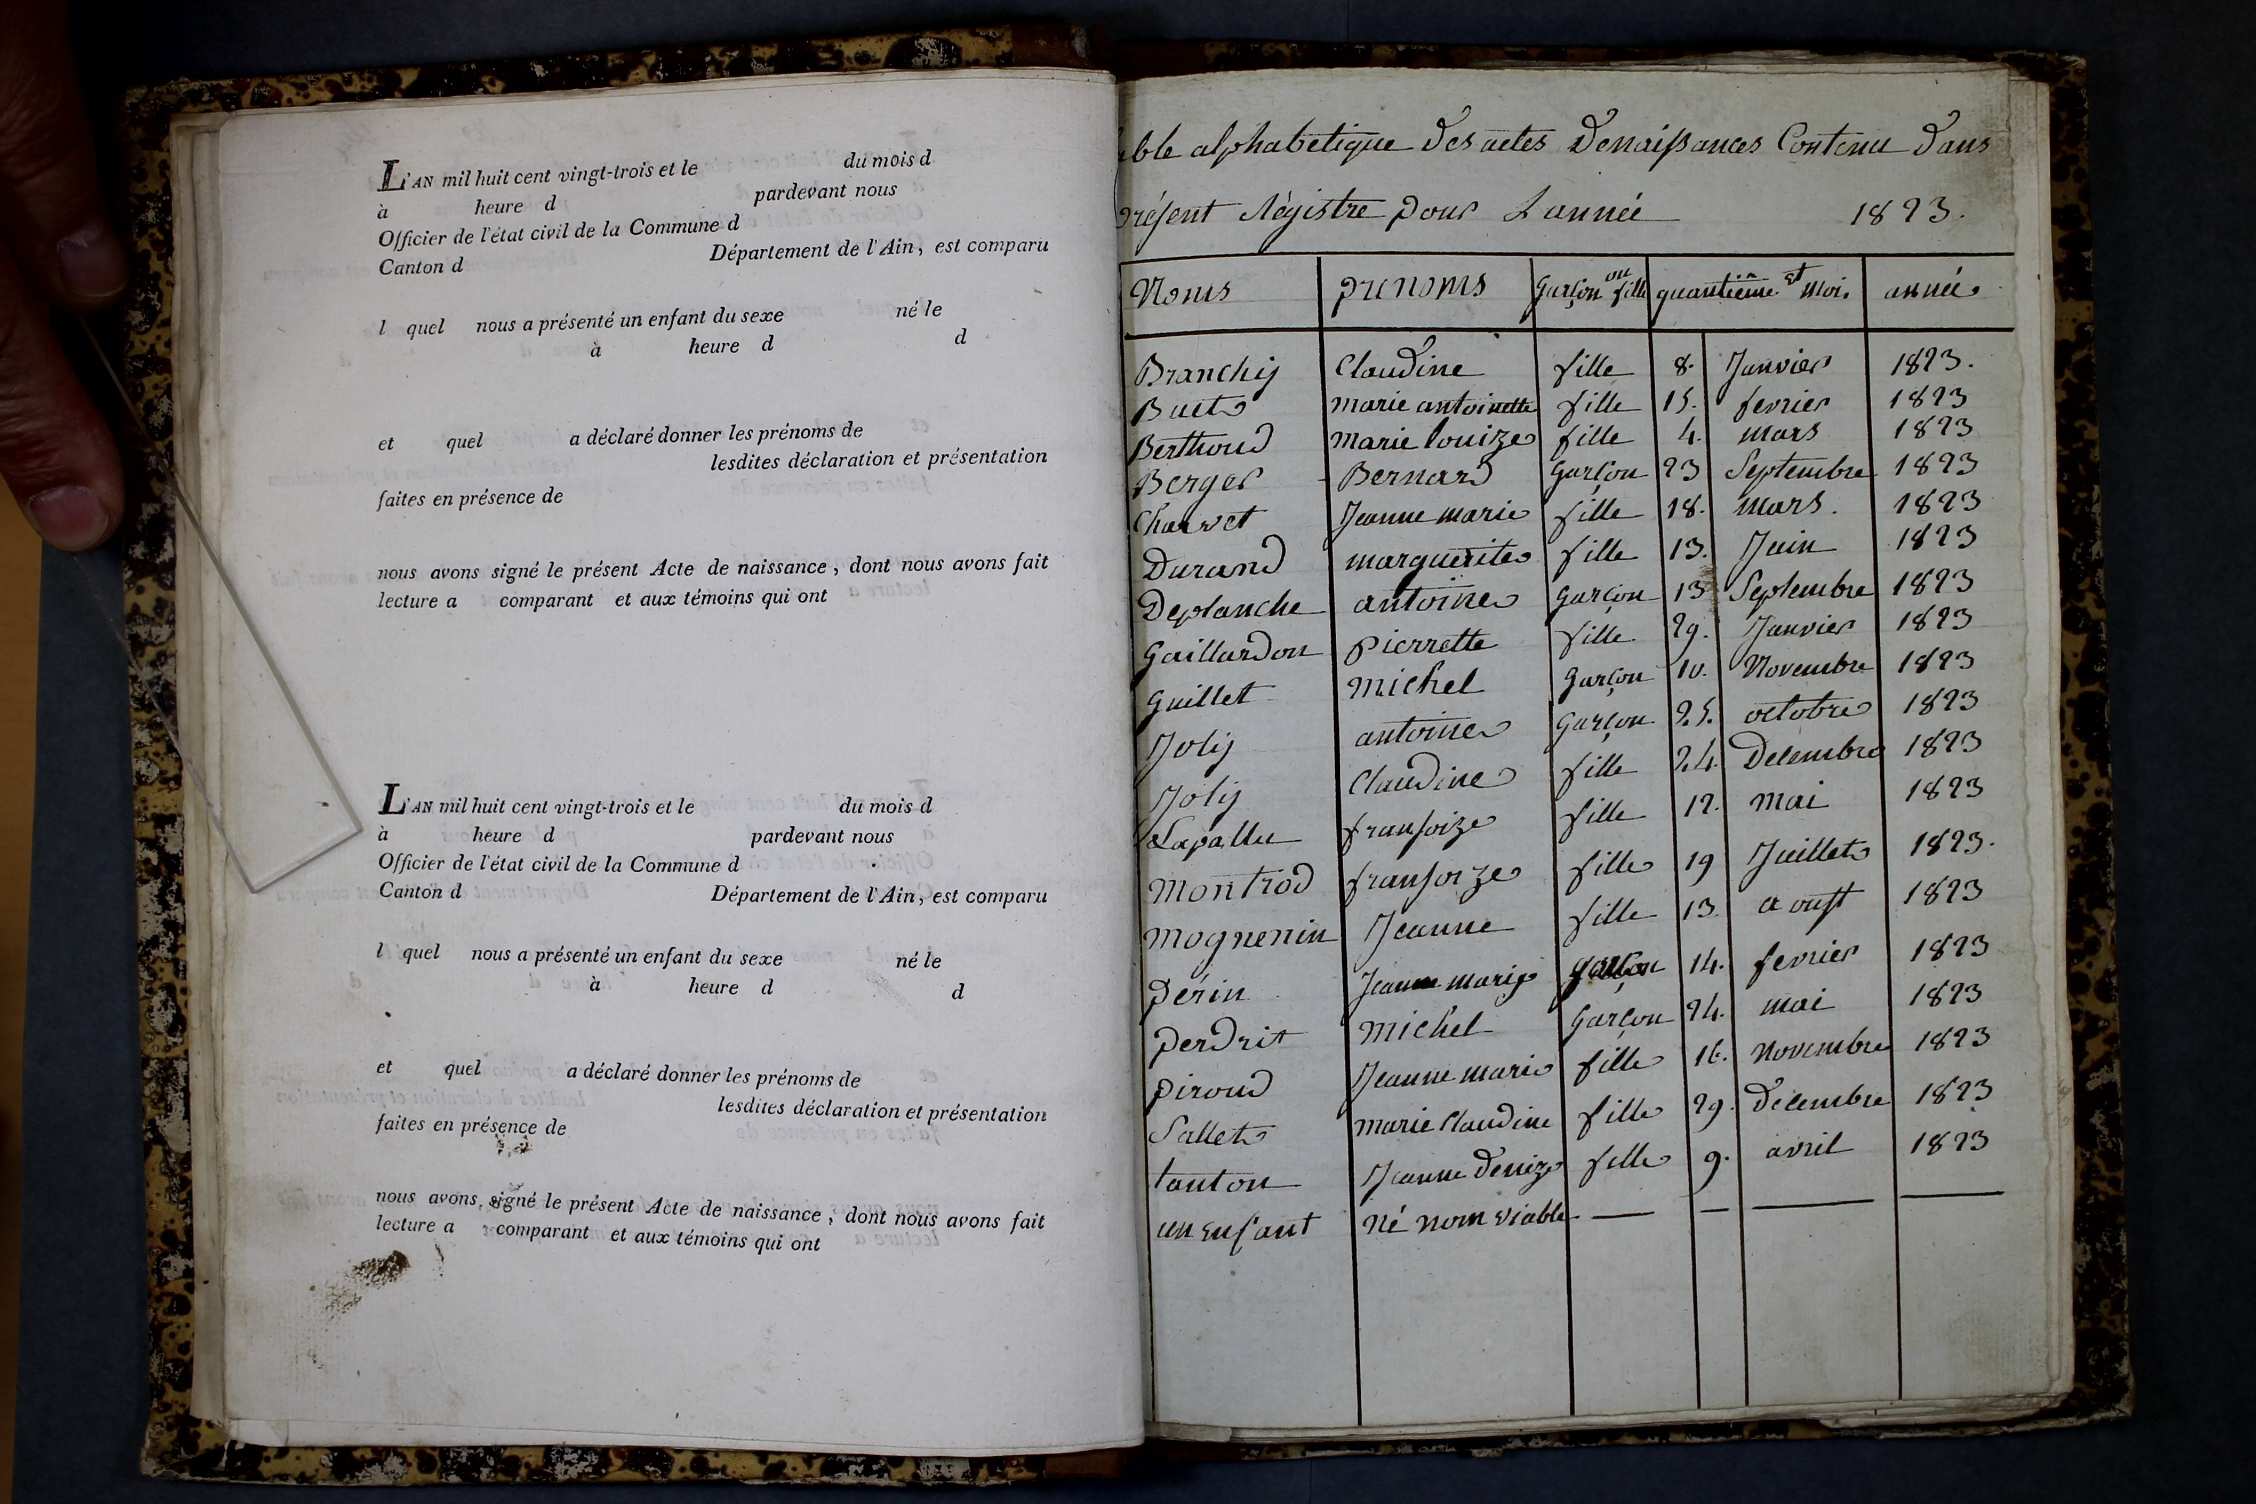 L'AN mil huit cent vingt-trois et le du mois d
à heure d pardevant nous
Officier de l'état civil de la Commune d
Canton d Département de l'Ain, est comparu
l quel nous a présenté un enfant du sexe né le
à heure d d
et quel a déclaré donner les prénoms de
lesdites déclaration et présentation
faites en présence de
nous avons signé le présent Acte de naissance, dont nous avons fait
lecture a comparant et aux témoins qui ont
L'AN mil huit cent vingt-trois et le du mois d
à heure d pardevant nous
Officier de l'état civil de la Commune d
Canton d Département de l'Ain, est comparu
l quel nous a présenté un enfant du sexe né le
à heure d d
et quel a déclaré donner les prénoms de
lesdites déclaration et présentation
faites en présence de
nous avons signé le présent Acte de naissance, dont nous avons fait
lecture a comparant et aux témoins qui ont
able alphabetique des actes Denaissances Contenu dans
présent Régistre pour L année 1823.
Noms prenoms Garçon ou fille quantième et mois année
Branchy Claudine fille 8. Janvier 1823.
Buet marie antoinette fille 15. fevrier 1823
Berthoud marie louize fille 4. mars 1823
Berger Bernard Garçon 23 Septembre 1823
Charvet Jeanne marie fille 18. mars. 1823
Durand marguerite fille 13. Juin 1823
Deplanche antoine garçon 13 Septembre 1823
Gaillardon Pierrette fille 29. Janvier 1823
Guillet michel garçon 10. Novembre 1823
Joly antoine Garçon 25. octobre 1823
Joly Claudine fille 24. Decembre 1823
Lapallu fransoize fille 12. mai 1823
Montrod fransoize fille 19 Juillet 1823.
mognenin Jeanne fille 13. aoust 1823
Périn Jeanne marie garçon 14. fevrier 1823
Perdrit michel Garçon 24. mai 1823
Piroud Jeanne marie fille 16. Novembre 1823
Sallet marie Claudine fille 29. décembre 1823
tanton Jeanne denize fille 9. avril 1823
un enfant Né nom viable